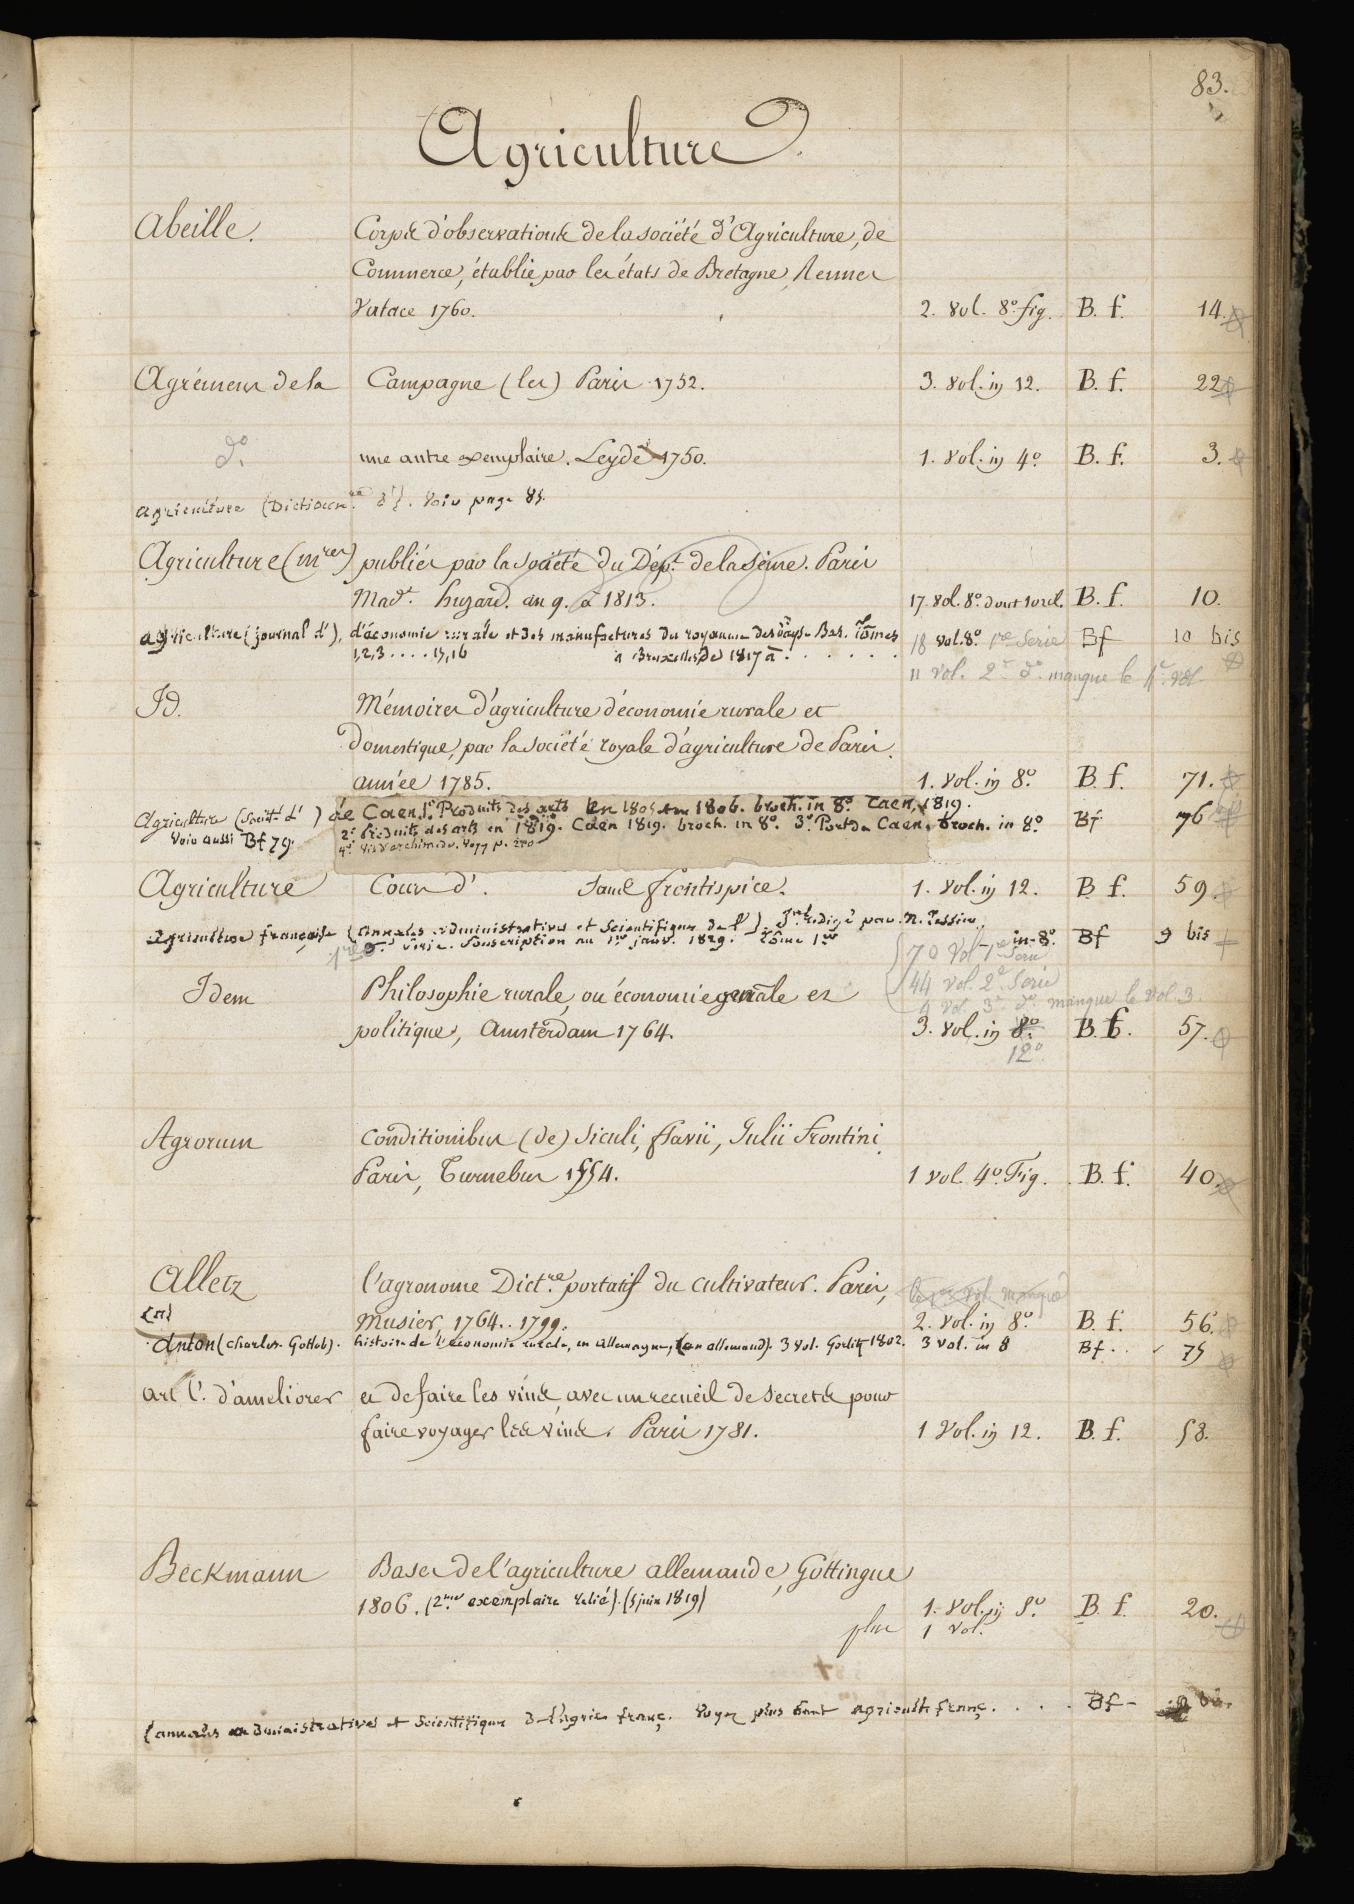 83.
Agriculture
Abeille. Corps d'observations de la société d'Agriculture, de
Commerce, établie par les états de Bretagne, Rennes
Vatace 1760. 2. Vol. 8º fig. B. f. 14.
Agrémens de la Campagne (les) Paris 1752. 3. Vol. in 12. B. f. 22
dº. une autre exemplaire. Leyde 1750. 1. Vol. in 4º. B. f. 3.
agriculture (Dictionn.re d'). Voir page 85.
Agriculture (mres) publiés par la Société du Dépt. de la Seine. Paris
Mad.e huzard. an 9. à 1813. 17. Vol. 8º. dont 10 rel. B. f. 10.
agriculture (journal d'), d'économie rurale et des manufactures du royaume des Pays-Bas. Tômes 18 vol. 8º. 1re Serie Bf 10 bis
1,2,3 .... 15,16 à Bruxelles de 1817 à . . . . . .
11 vol. 2e dº. manque le 4e. vol.
Id. Mémoires d'agriculture d'économie rurale et
domestique, par la Société royale d'agriculture de Paris.
année 1785. 1. Vol. in 8º. B. f. 71.
Agriculture (Société d') de Caen. 1º Produits des arts en 1805 en 1806. broch. in 8º. Caen, 1819.
Voir aussi Bf 79. 2º Produits des arts en 1819. Caen 1819. broch. in 8º. 3º. Port de Caen, broch. in 8º. Bf 76
4º. Vis d'archimède. Voyz p. 270
Agriculture Cours d'. Sans frontispice. 1. Vol. in 12. B. f. 59.
Agriculture française (annales administratives et Scientifiques de l'). Jnal. rédigé par M. Tessier.
1re Série. Souscription au 1er janv. 1829. Tôme 1er in-8º. Bf 9 bis
70 Vol 1re Serie
44 vol. 2e Serie
4 vol. 3e dº manque le vol. 3.
Idem Philosophie rurale, ou économie générale et
politique, Amsterdam 1764. 3. Vol. in 8º. B. f. 57.
12º.
Agrorum Conditionibus (de) Siculi, flavii, Julii Frontini.
Paris, Turnebus 1554. 1 vol. 4º. Fig. B. f. 40.
Alletz l'agronome Dict.re portatif du Cultivateur. Paris, le 1er Vol manque
Musier, 1764.. 1799. 2. Vol. in 8º. B. f. 56.
Anton (charles. Gottlob). histoire de l'économie rurale, en allemagne, (en allemand). 3 vol. Gorlitz 1802. 3 vol. in 8 Bf.. 75
art l'. d'ameliorer et de faire les vins, avec un recueil de secrets pour
faire voyager les vins. Paris 1781. 1 Vol. in 12. B. f. 58.
Beckmann Bases de l'agriculture allemande, Gottingue
1806. (2me exemplaire relié). (5 juin 1819) 1. Vol. in 8º. B. f. 20.
plus 1 Vol.
(annales administratives et Scientifiques de l'agric. franç. Voyez plus haut agricult. franç. . . . Bf - 9 bis.